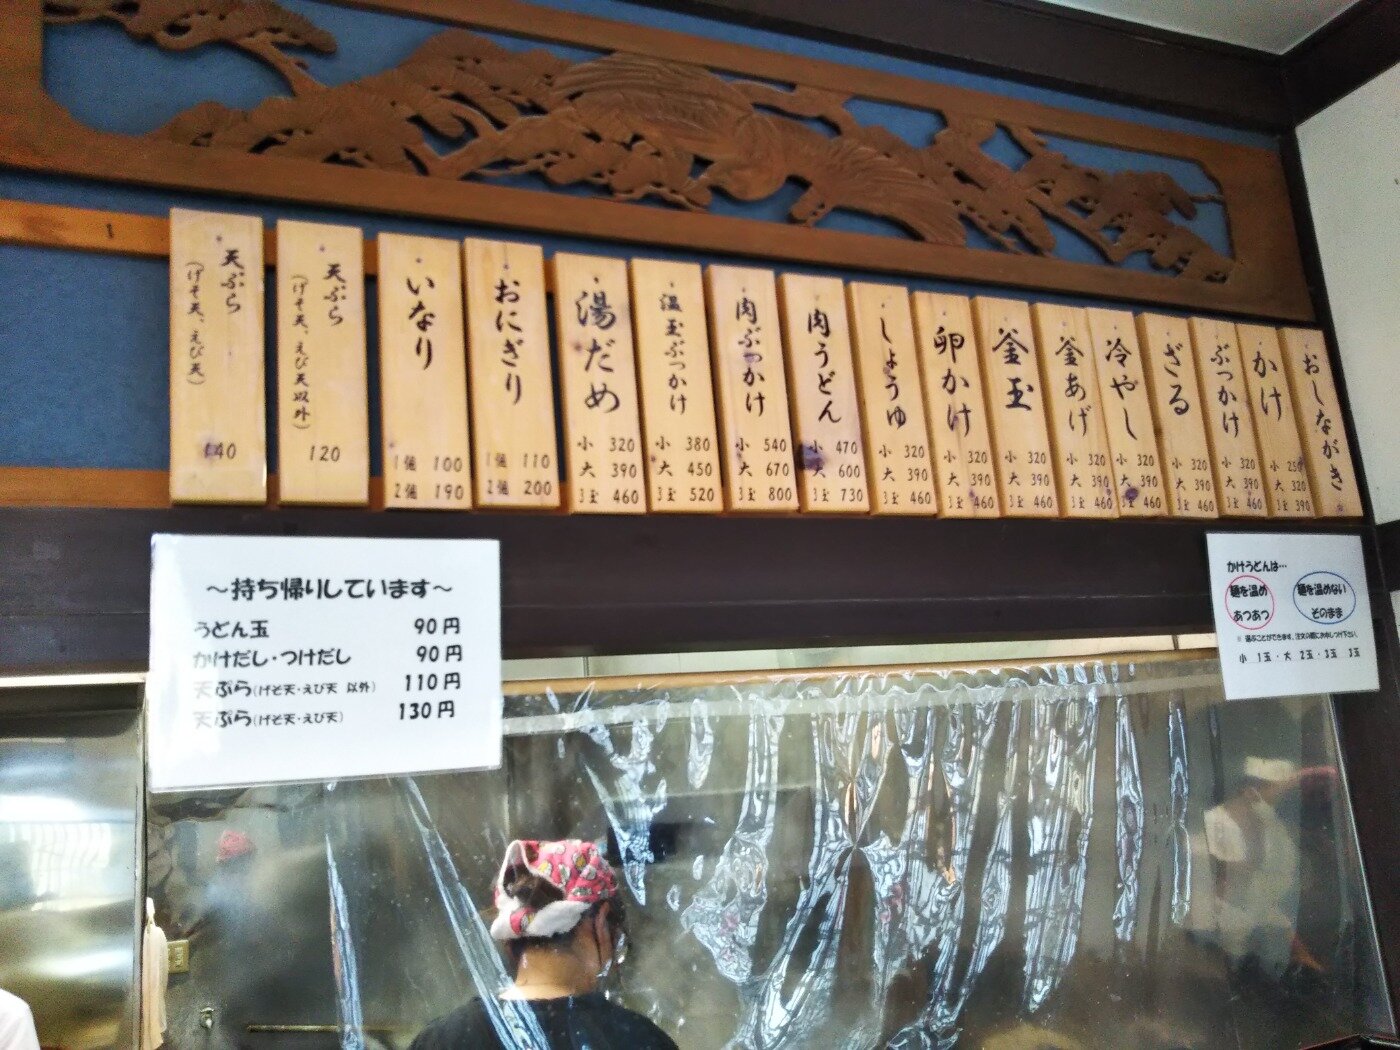 おしながき
かけ
小 250
大 320
3玉 390
ぶっかけ
小 320
大 390
3玉 460
ざる
小 320
大 390
3玉 460
冷やし
小 320
大 390
3玉 460
釜あげ
小 320
大 390
3玉 460
釜玉
小 320
大 390
3玉 460
卵かけ
小 320
大 390
3玉 460
しょうゆ
小 320
大 390
3玉 460
肉うどん
小 470
大 600
3玉 730
肉ぶっかけ
小 540
大 670
3玉 800
温玉ぶっかけ
小 380
大 450
3玉 520
湯だめ
小 320
大 390
3玉 460
おにぎり
1個 110
2個 200
いなり
1個 100
2個 190
天ぷら
(げそ天、えび天以外)
120
天ぷら
(げそ天、えび天)
140
1
～持ち帰りしています～
うどん玉 90円
かけだし・つけだし 90円
天ぷら(げそ天・えび天 以外) 110円
天ぷら(げそ天・えび天) 130円
かけうどんは…
麺を温め
あつあつ
麺を温めない
そのまま
※ 選ぶことができます。注文の際にお申しつけ下さい。
小 1玉・大 2玉・3玉 3玉